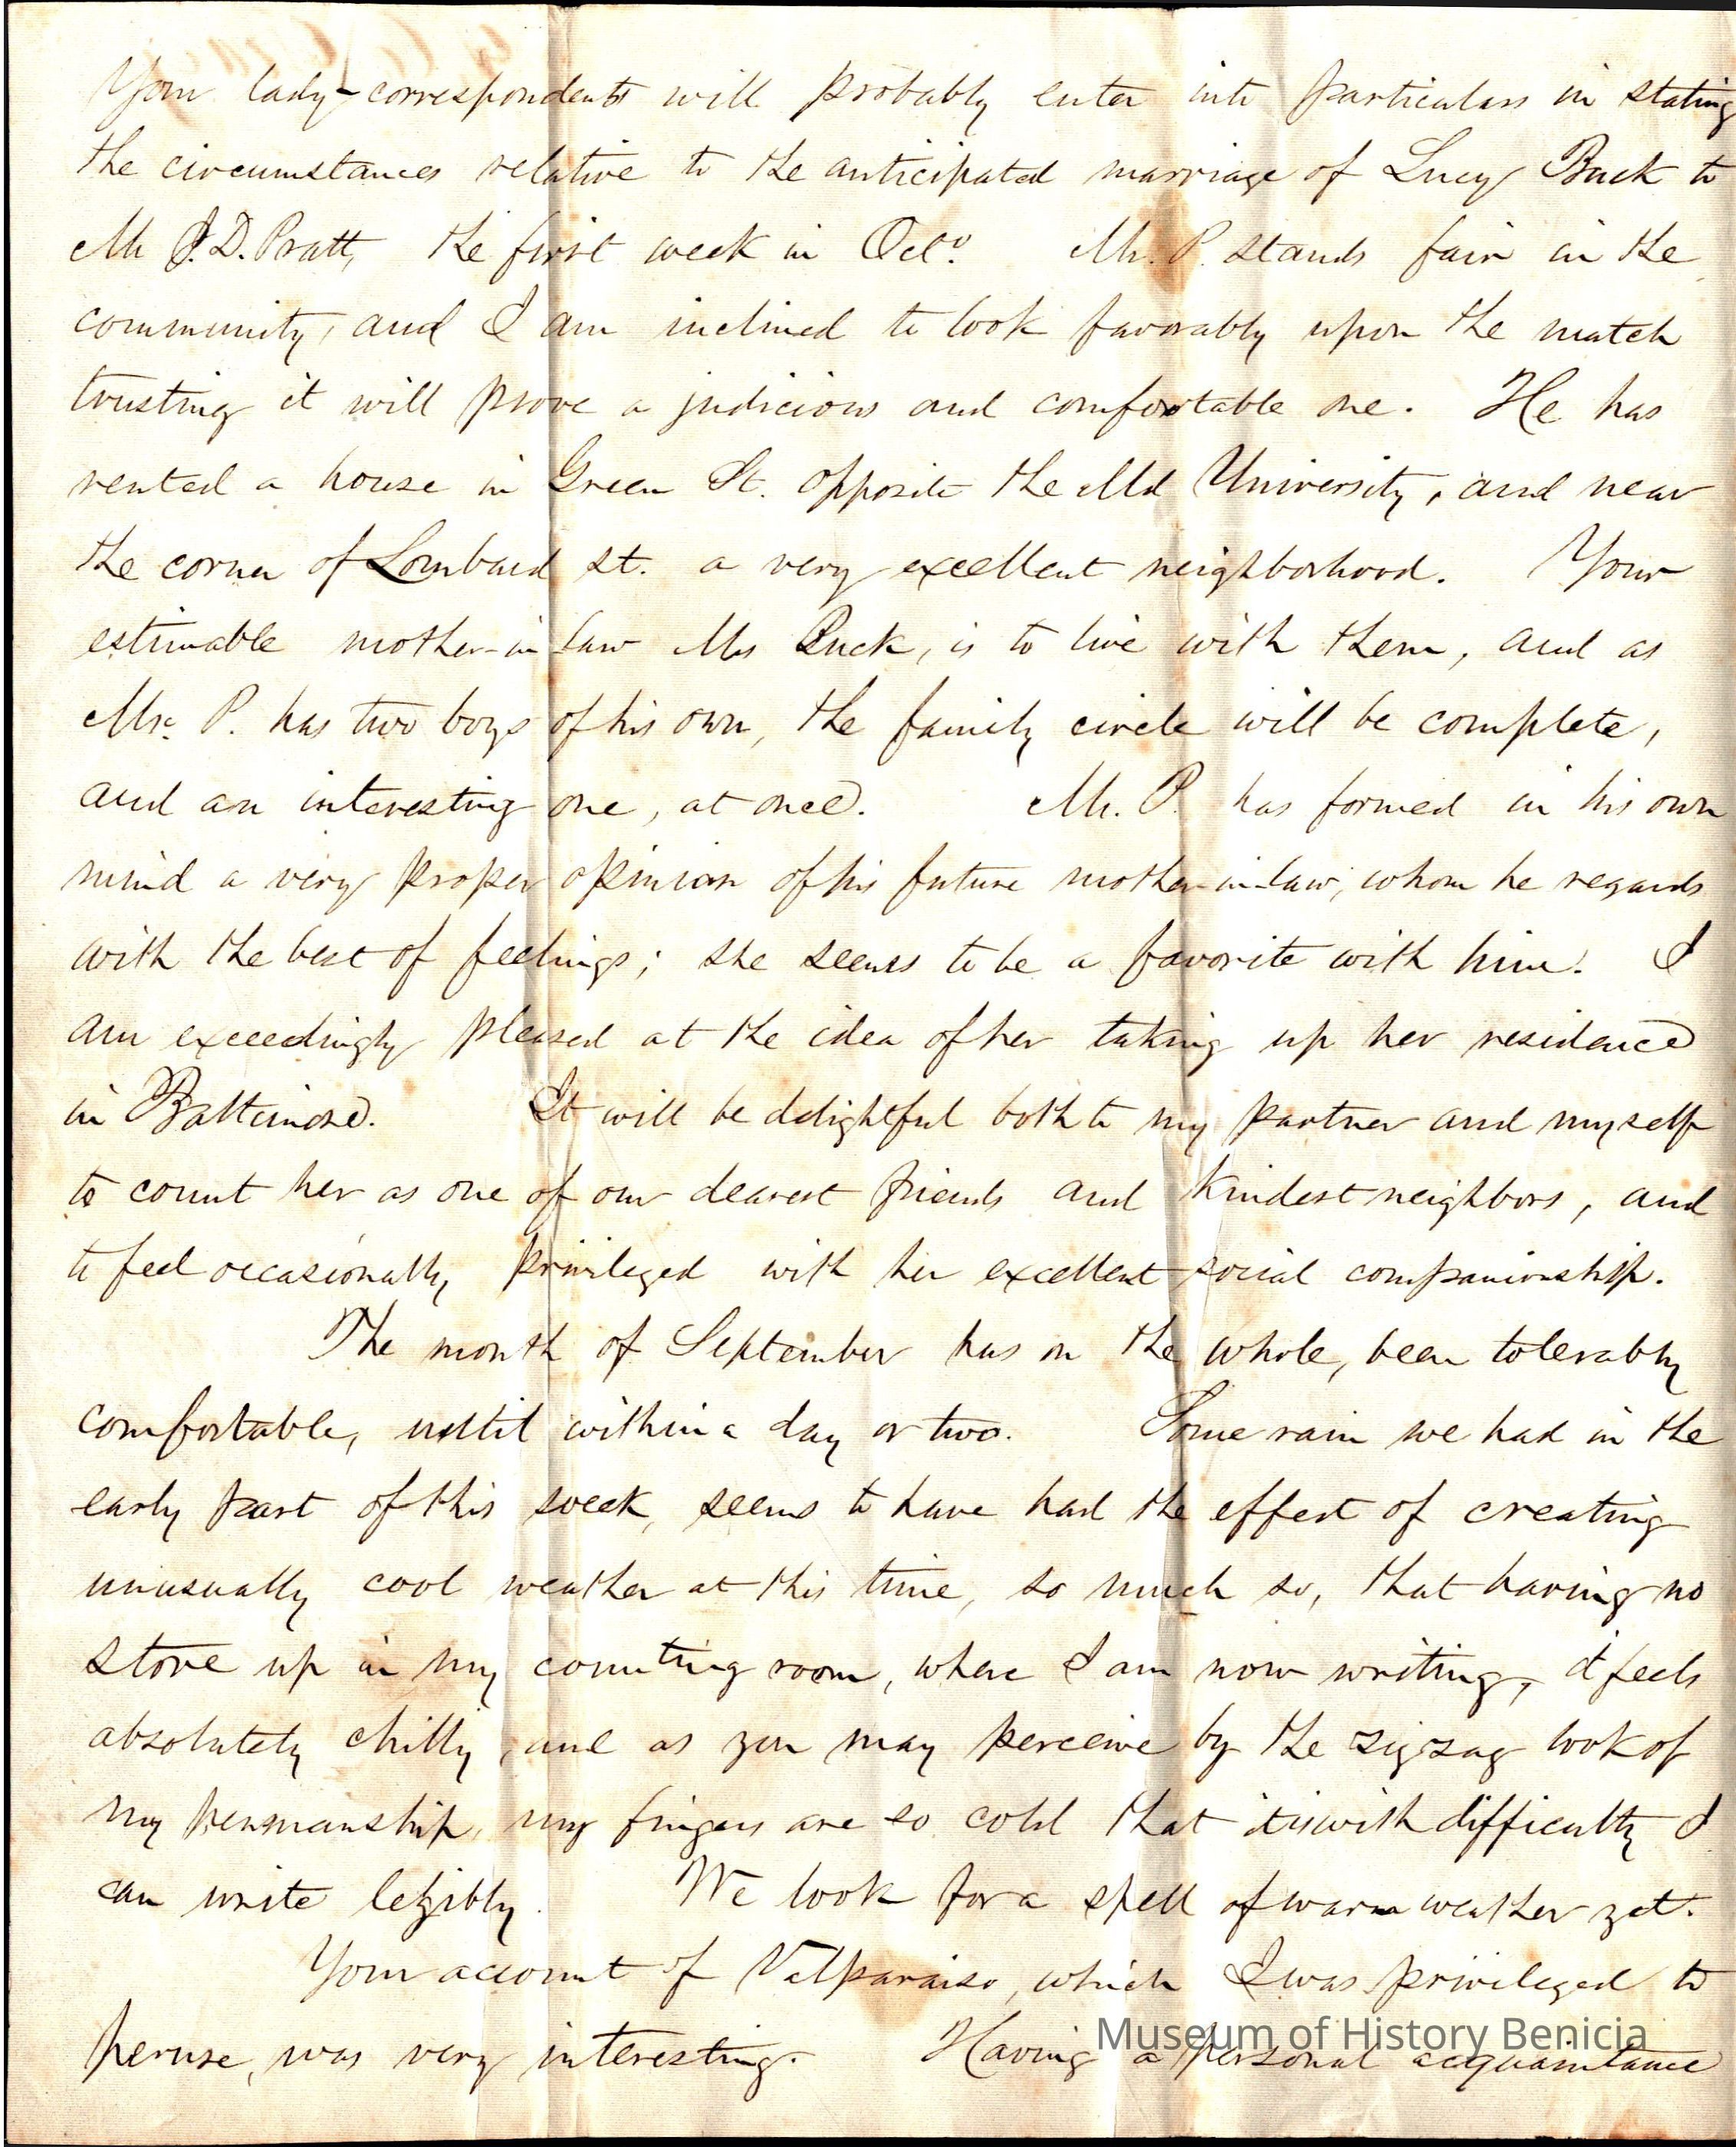 Your lady-correspondents will probably enter into particulars in stating
the circumstances relative to the anticipated marriage of Lucy Buck to
Mr J.D. Pratt, the first week in Octr. Mr. P. stands fair in the
community, and I am inclined to look favorably upon the match
trusting it will prove a judicious and comfortable one. He has
rented a house in Green St. opposite the Md University, and near
the corner of Lombard st. a very excellent neighborhood. Your
estimable mother-in law Mrs Buck, is to live with them, and as
Mr. P. has two boys of his own, the family circle will be complete,
and an interesting one, at once. Mr. P. has formed in his own
mind a very proper opinion of his future mother-in-law, whom he regards
with the best of feelings; she seems to be a favorite with him. I
am exceedingly pleased at the idea of her taking up her residence
in Baltimore. It will be delightful both to my partner and myself
to count her as one of our dearest friends and kindest neighbors, and
to feel occasionally privileged with her excellent social companionship.
The month of September has on the whole, been tolerably
comfortable, until within a day or two. Some rain we had in the
early part of this week, seems to have had the effect of creating
unusually cool weather at this time, so much so, that having no
stove up in my counting room, where I am now writing, it feels
absolutely chilly, and as you may perceive by the zigzag look of
my penmanship, my fingers are so cold that it is with difficulty I
can write legibly. We look for a spell of warm weather yet.
Your account of Valparaiso, which I was privileged to
peruse, was very interesting. Having a personal acquaintance
Museum of History Benicia